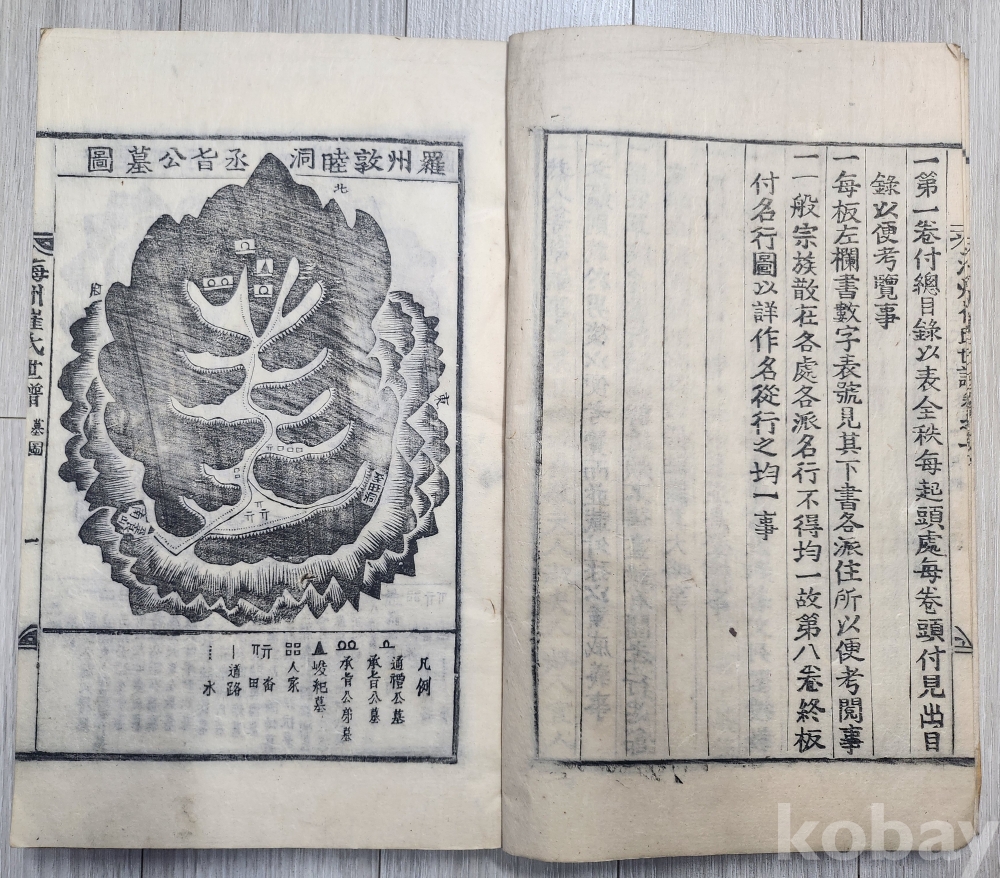 一第一卷付總目錄以表全秩每起頭處每卷頭付見出目
錄以便考覽事
一每板左欄書數字表號見其下書各派住所以便考閱事
一一般宗族散在各處各派名行不得均一故第八卷終板
付名行圖以詳作名從行之均一事
羅州敦睦洞丞旨公墓圖
北
東
凡例
通禮公墓
承旨公墓
承旨公弟墓
峻祀墓
人家
畓田
道路
水
海州崔氏世譜
墓圖
一
kobay